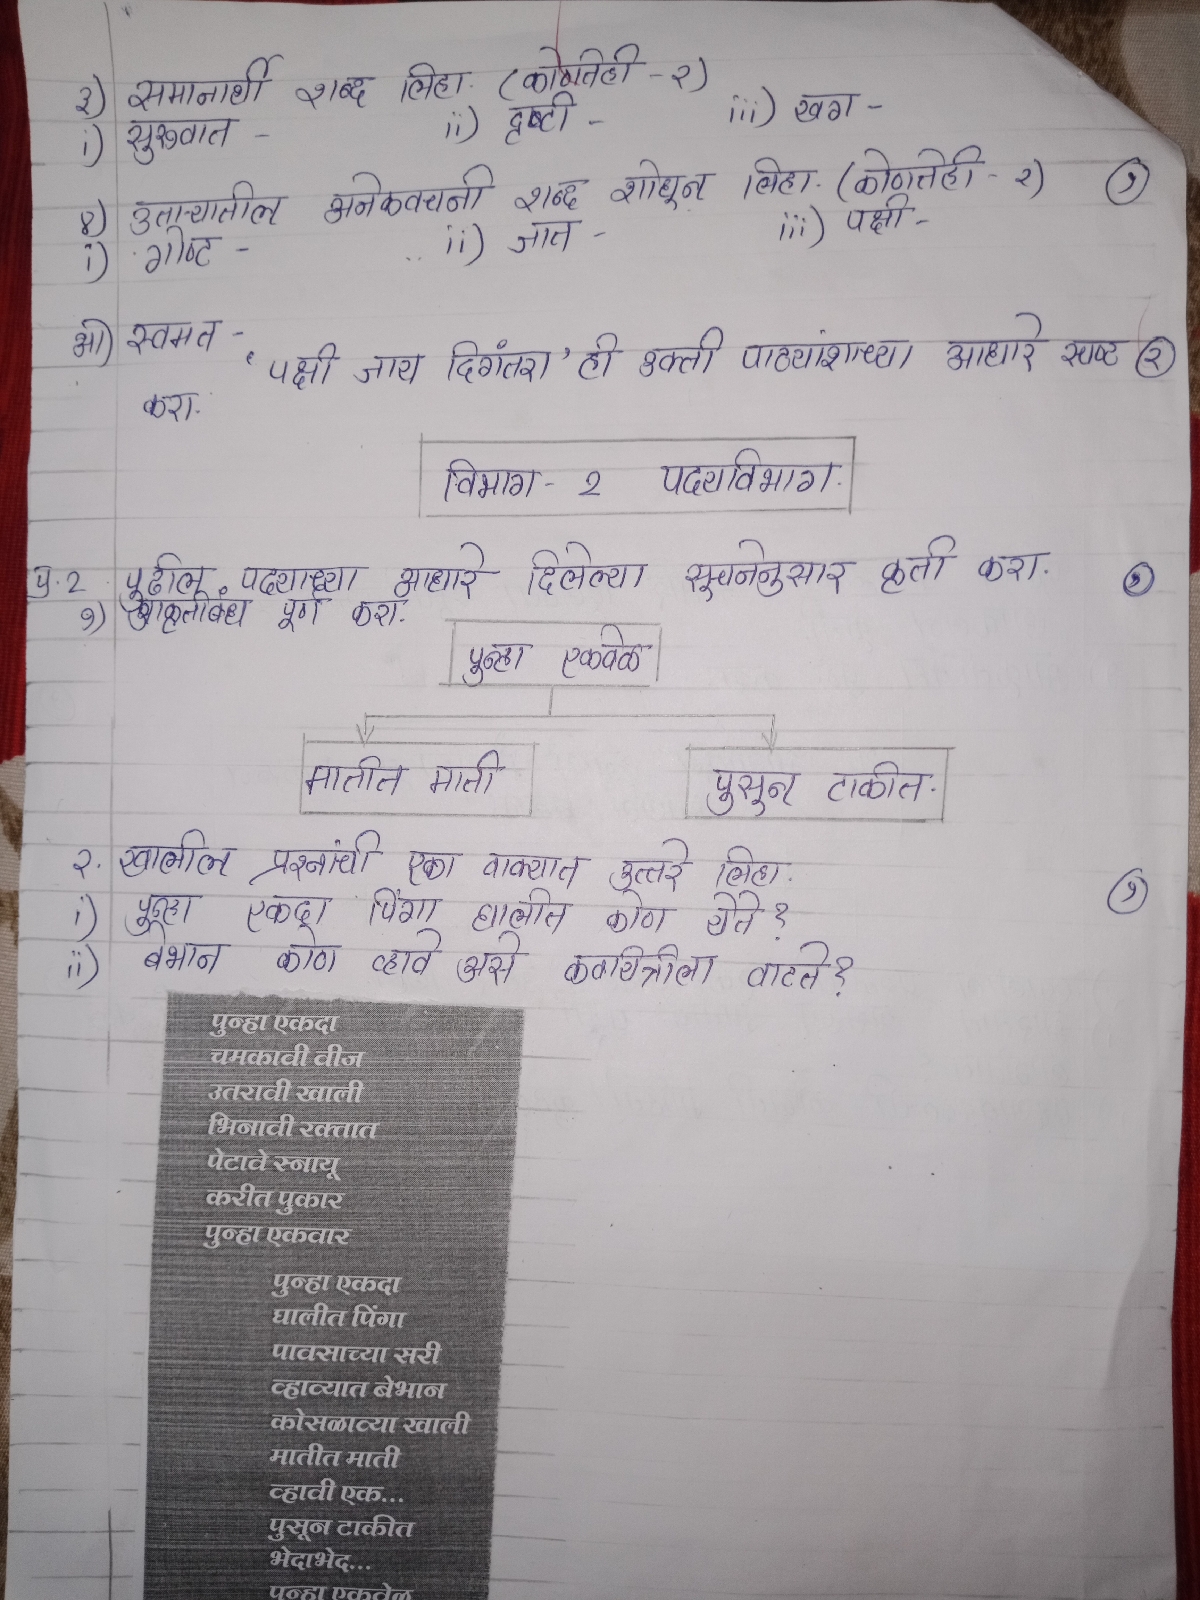 ३) समानार्थी शब्द लिहा. (कोणतेही - २)
i) सुरुवात - ii) दृष्टी - iii) खग -
४) उताऱ्यातील अनेकवचनी शब्द शोधून लिहा. (कोणतेही - २) १
i) गोष्ट - ii) जात - iii) पक्षी -
ओ) स्वमत -
'पक्षी जाय दिगंतरा' ही उक्ती पाठ्यांशाच्या आधारे स्पष्ट २
करा.
विभाग - २ पद्यविभाग.
प्र. २ पुढील पद्याच्या आधारे दिलेल्या सूचनेनुसार कृती करा.
१) आकृतीबंध पूर्ण करा.
पुन्हा एकवेळ
मातीत माती पुसून टाकीत.
२. खालील प्रश्नांची एका वाक्यात उत्तरे लिहा.
i) पुन्हा एकदा पिंगा घालीत कोण येते? १
ii) बेभान कोण व्हावे असे कवयित्रीला वाटते?
पुन्हा एकदा
चमकावी वीज
उतरावी खाली
भिनावी रक्तात
पेटावे स्नायू
करीत पुकार
पुन्हा एकवार
पुन्हा एकदा
घालीत पिंगा
पावसाच्या सरी
व्हाव्यात बेभान
कोसळाव्या खाली
मातीत माती
व्हावी एक...
पुसून टाकीत
भेदाभेद...
पुन्हा एकवेळ